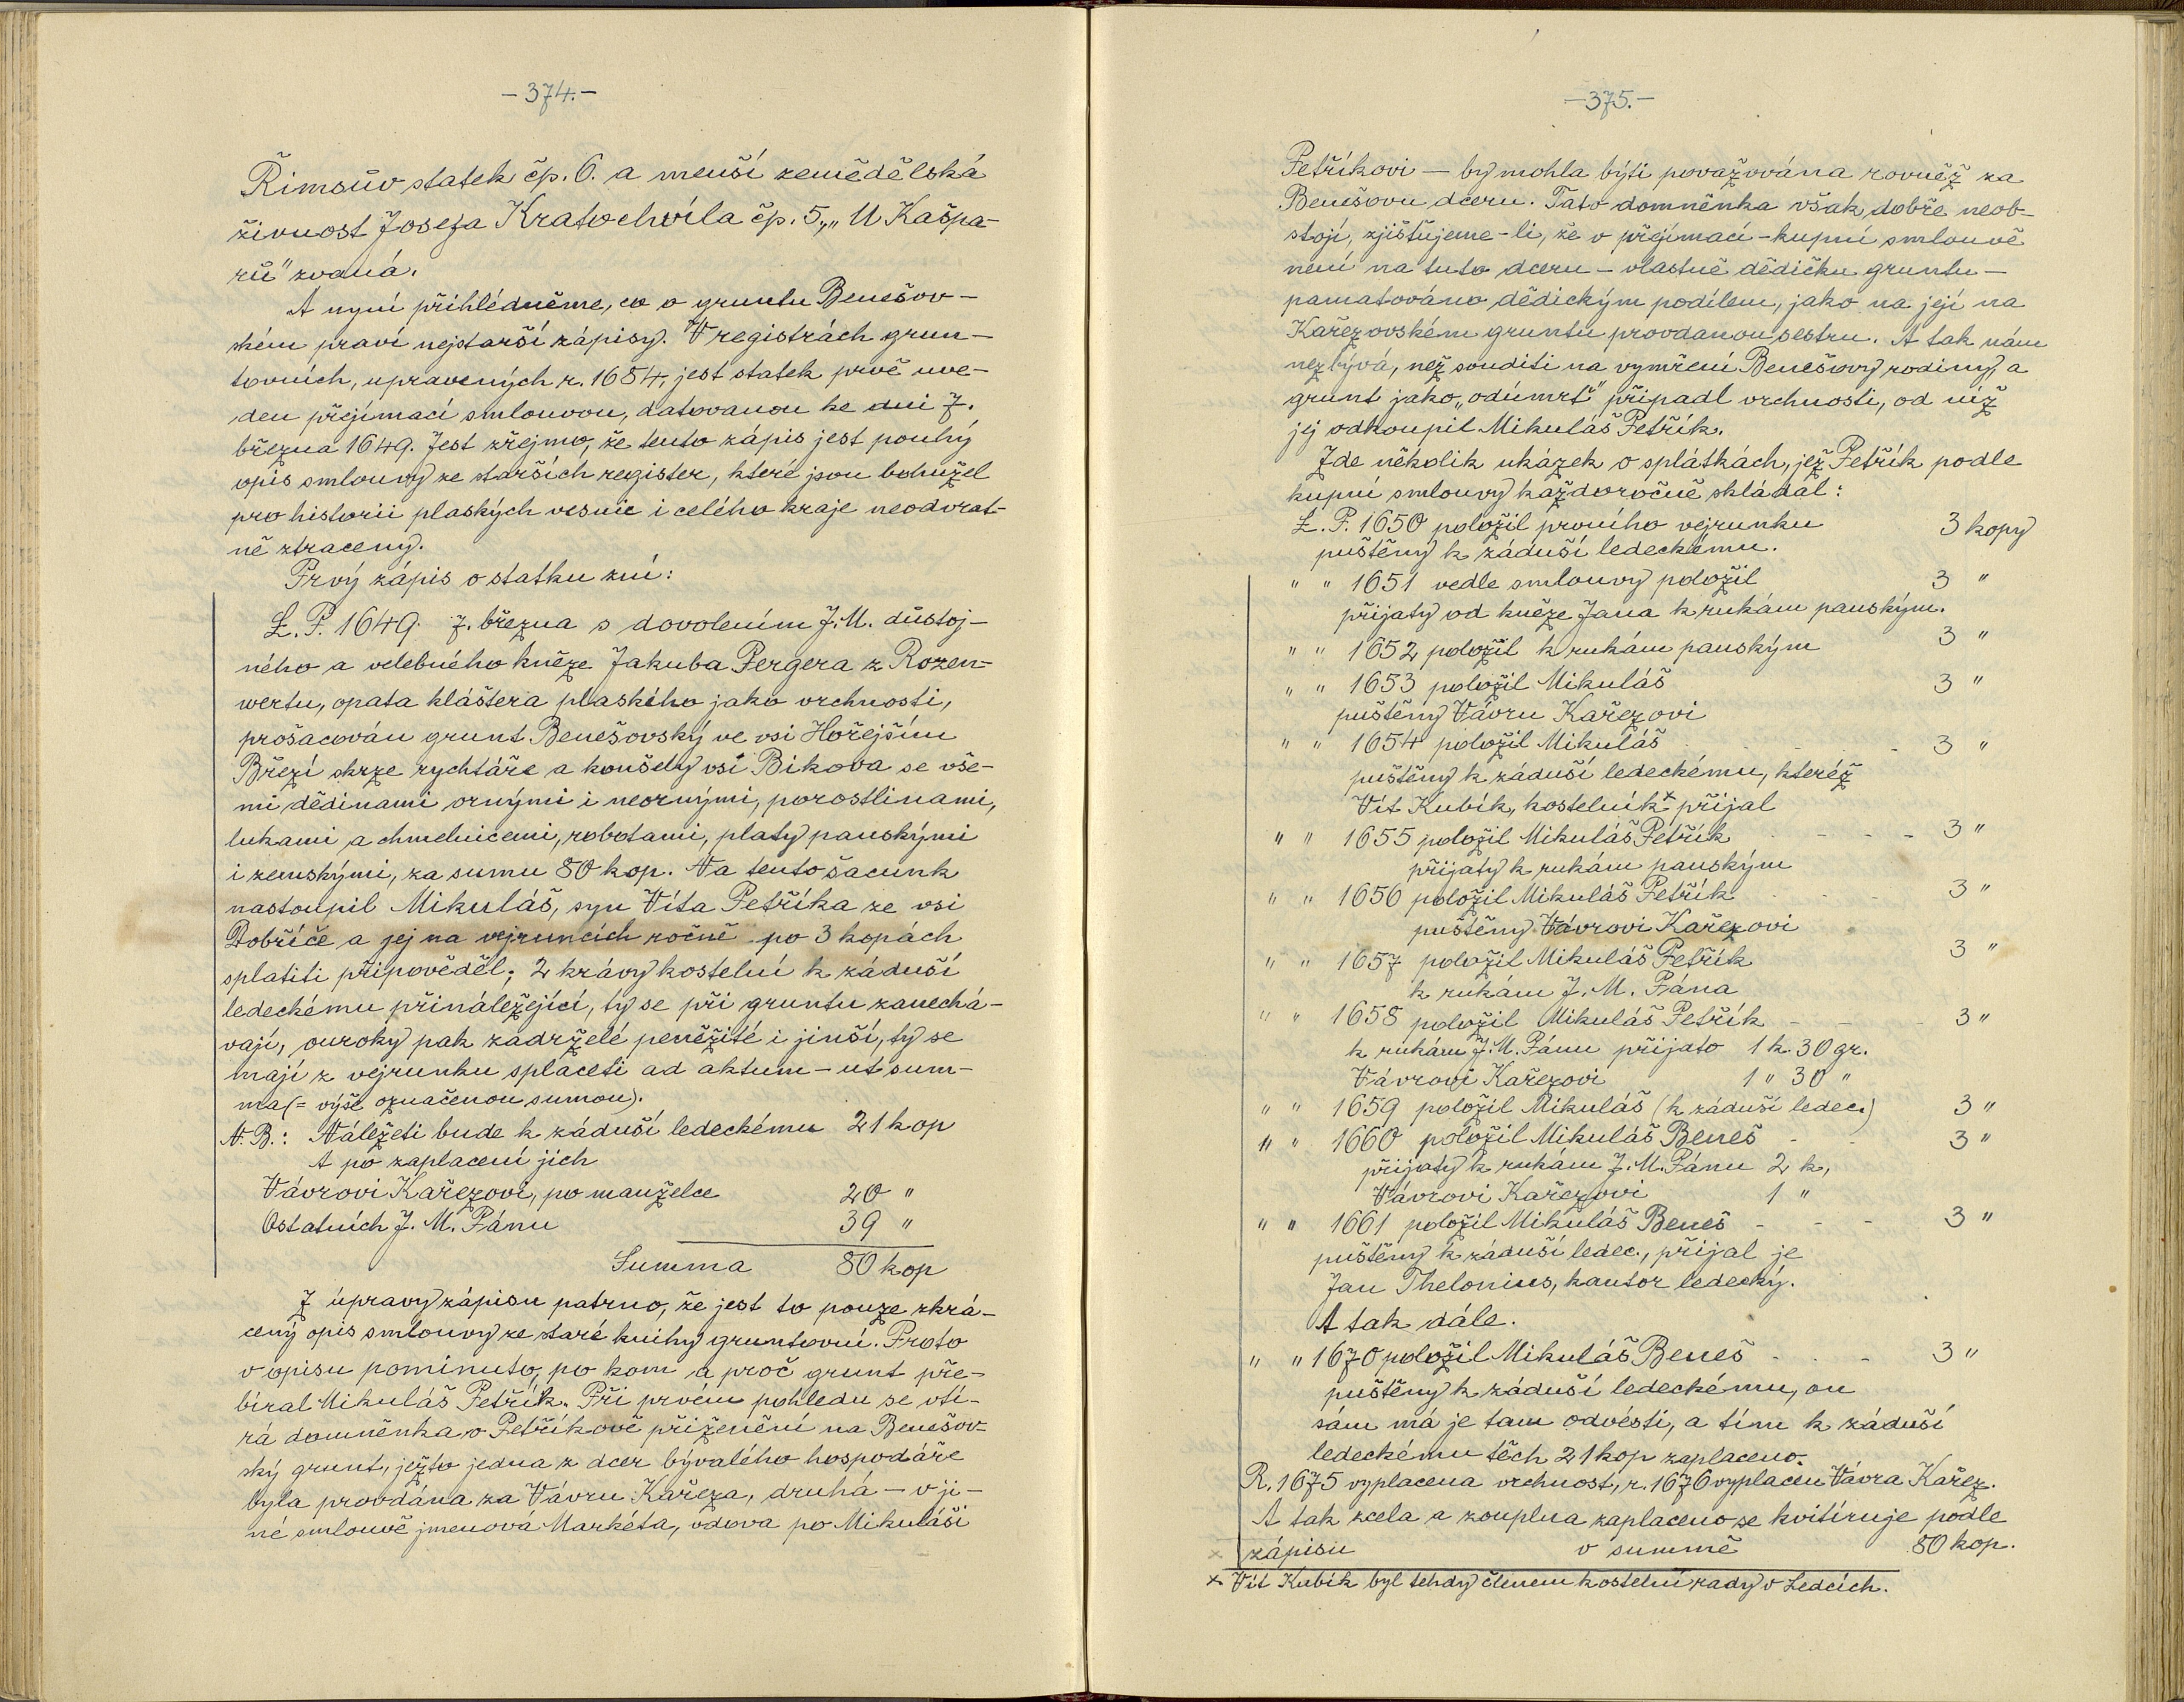 - 374. -
Řimsův statek čp. 6. a menší zemědělská
živnost Josefa Kratochvíla čp. 5. „U Kašpa-
rů" zvaná.
A nyní přihlédněme, co o gruntu Benešov-
ském praví nejstarší zápisy. V registrách grun-
tovních, upravených r. 1684, jest statek prvě uve-
den přejímací smlouvou, datovanou ke dni 7.
března 1649. Jest zřejmo, že tento zápis jest pouhý
opis smlouvy ze starších register, které jsou bohužel
pro historii plaských vesnic i celého kraje neodvrat-
ně ztraceny.
Prvý zápis o statku zní:
L. P. 1649. 7. března s dovolením J. M. důstoj-
ného a velebného kněze Jakuba Pergera z Rozen-
wertu, opata kláštera plaského jako vrchnosti,
prošacován grunt Benešovský ve vsi Hořejším
Březí skrze rychtáře a konšely vsi Bikova se vše-
mi dědinami ornými i neornými, porostlinami,
lukami a chmelnicemi, robotami, platy panskými
i zemskými, za sumu 80 kop. Na tento šacunk
nastoupil Mikuláš, syn Víta Petříka ze vsi
Dobříče a jej na vejruncích ročně po 3 kopách
splatiti připověděl; 2 krávy kostelní k záduší
ledeckému přináležející, ty se při gruntu zanechá-
vají, ouroky pak zadrželé peněžité i jinší, ty se
mají z vejrunku splaceti ad aktum - ut sum-
ma (= výše označenou sumou).
N. B.: Náležeti bude k záduší ledeckému 21 kop
A po zaplacení jich
Vávrovi Kařezovi, po manželce 20 "
Ostatních J. M. Pánu 39 "
Summa 80 kop
Z úpravy zápisu patrno, že jest to pouze zkrá-
cený opis smlouvy ze staré knihy gruntovní. Proto
v opisu pominuto, po kom a proč grunt pře-
bíral Mikuláš Petřík. Při prvém pohledu se vtí-
rá domněnka o Petříkově přiženění na Benešov-
ský grunt, ježto jedna z dcer bývalého hospodáře
byla provdána za Vávru Kařeza, druhá - v ji-
né smlouvě jmenová Markéta, vdova po Mikuláši
- 375. -
Petříkovi — by mohla býti považována rovněž za
Benešovu dceru. Tato domněnka však dobře neob-
stojí, zjišťujeme-li, že v přejímací-kupní smlouvě
není na tuto dceru - vlastně dědičku gruntu -
pamatováno dědickým podílem, jako na její na
Kařezovském gruntu provdanou sestru. A tak nám
nezbývá, než souditi na vymření Benešovy rodiny, a
grunt jako „odúmrť" připadl vrchnosti, od níž
jej odkoupil Mikuláš Petřík.
Zde několik ukázek o splátkách, jež Petřík podle
kupní smlouvy každoročně skládal:
L. P. 1650 položil prvního vejrunku 3 kopy
puštěny k záduší ledeckému.
" " 1651 vedle smlouvy položil 3 "
přijaty od kněze Jana k rukám panským.
" " 1652 položil k rukám panským 3 "
" " 1653 položil Mikuláš 3 "
puštěny Vávru Kařezovi
" " 1654 položil Mikuláš - - - - 3 "
puštěny k záduší ledeckému, kteréž
Vít Kubík, kostelník x přijal
" " 1655 položil Mikuláš Petřík - - - - 3 "
přijaty k rukám panským
" " 1656 položil Mikuláš Petřík - - - 3 "
puštěny Vávrovi Kařezovi
" " 1657 položil Mikuláš Petřík 3 "
k rukám J. M. Pána
" " 1658 položil Mikuláš Petřík - - - 3 "
k rukám J. M. Pánu přijato 1 k. 30 gr.
Vávrovi Kařezovi 1 " 30 "
" " 1659 položil Mikuláš (k záduší ledec.) 3 "
" " 1660 položil Mikuláš Beneš - - 3 "
přijaty k rukám J. M. Pánu 2 k,
Vávrovi Kařezovi 1 "
" " 1661 položil Mikuláš Beneš - - - 3 "
puštěny k záduší ledec., přijal je
Jan Thelonius, kantor ledecký.
A tak dále.
" " 1670 položil Mikuláš Beneš - - - 3 "
puštěny k záduší ledeckému, on
sám má je tam odvésti, a tím k záduší
ledeckému těch 21 kop zaplaceno.
R. 1675 vyplacena vrchnost, r. 1676 vyplacen Vávra Kařez.
A tak zcela a zouplna zaplaceno se kvitíruje podle
zápisu v summě 80 kop.
x Vít Kubík byl tehdy členem kostelní rady v Ledcích.